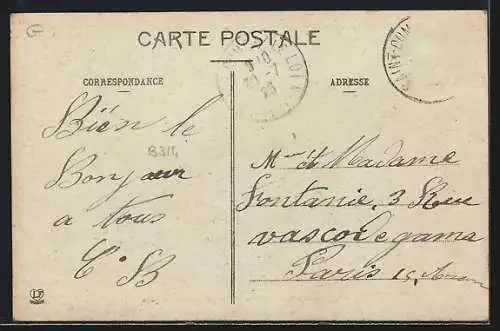 CARTE POSTALE
CORRESPONDANCE
ADRESSE
Bien le
Bonjour
a tous
C. B
B314
Mr et Madame
Fontanie. 3 Rue
vasco de gama
Paris 15
SAINT-DOM